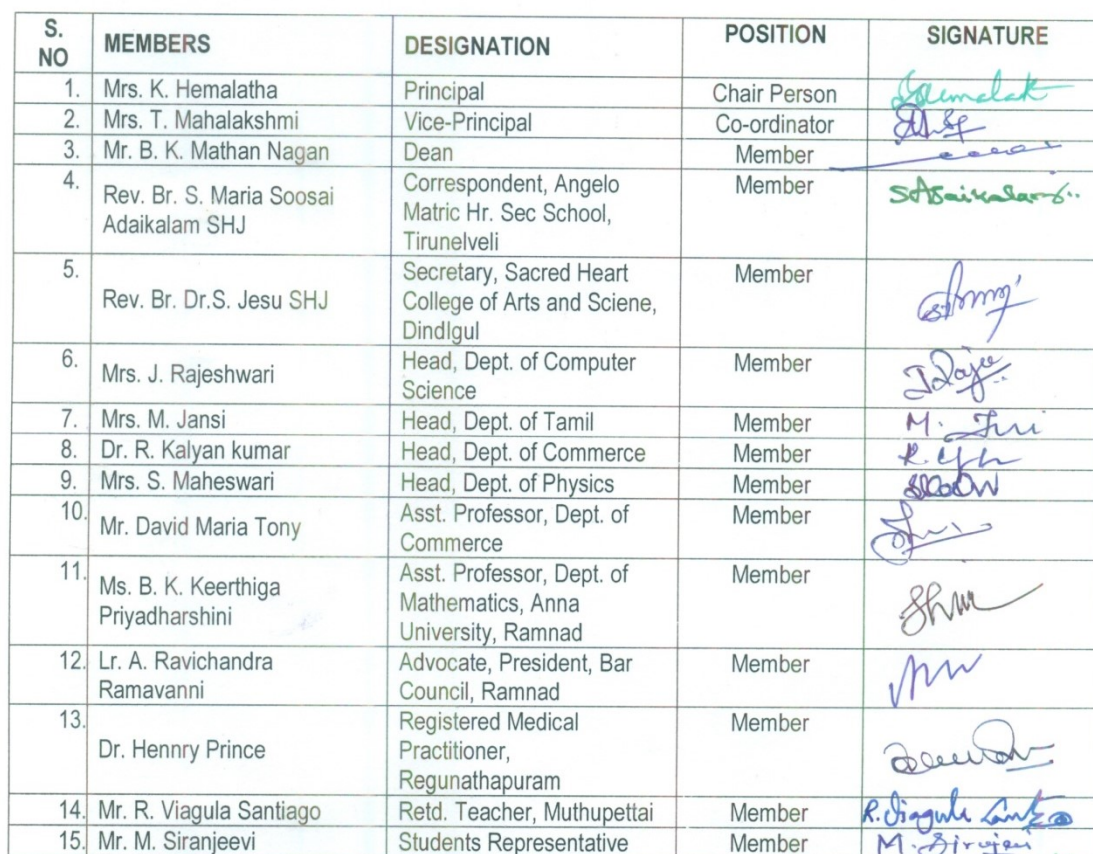 S. NO MEMBERS DESIGNATION POSITION SIGNATURE
1. Mrs. K. Hemalatha Principal Chair Person
2. Mrs. T. Mahalakshmi Vice-Principal Co-ordinator
3. Mr. B. K. Mathan Nagan Dean Member
4. Rev. Br. S. Maria Soosai Adaikalam SHJ Correspondent, Angelo Matric Hr. Sec School, Tirunelveli Member
5. Rev. Br. Dr.S. Jesu SHJ Secretary, Sacred Heart College of Arts and Sciene, Dindlgul Member
6. Mrs. J. Rajeshwari Head, Dept. of Computer Science Member
7. Mrs. M. Jansi Head, Dept. of Tamil Member
8. Dr. R. Kalyan kumar Head, Dept. of Commerce Member
9. Mrs. S. Maheswari Head, Dept. of Physics Member
10. Mr. David Maria Tony Asst. Professor, Dept. of Commerce Member
11. Ms. B. K. Keerthiga Priyadharshini Asst. Professor, Dept. of Mathematics, Anna University, Ramnad Member
12. Lr. A. Ravichandra Ramavanni Advocate, President, Bar Council, Ramnad Member
13. Dr. Hennry Prince Registered Medical Practitioner, Regunathapuram Member
14. Mr. R. Viagula Santiago Retd. Teacher, Muthupettai Member
15. Mr. M. Siranjeevi Students Representative Member